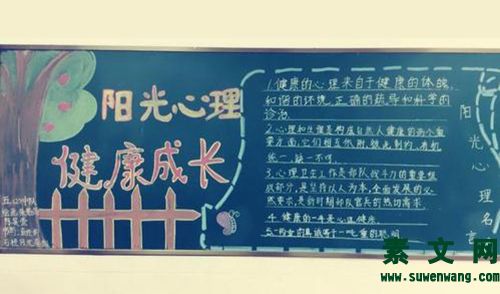 阳光心理
健康成长
1.健康的心理来自于健康的体魄,
和谐的环境,正确的疏导和科学的
诊治。
2.心理和生理是构成自然人健康的两个重
要方面,它们相互依附,彼此制约,有机
统一,缺一不可。
3.心理卫生工作是部队战斗力的重要组
成部分,是坚持以人为本,全面发展的必
然要求,是新时期部队官兵的热切需求。
4.健康的一半是心理健康。
阳光心理名言
素文网
www.suwenwang.com